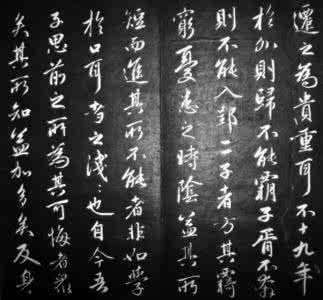 遷之為貴重耳不十九年
於外則歸不能霸子胥不窘
則不能入郢二子者方其羈
窮憂患之時陰益其所
短而進其所不能者非如學
於口耳者之淺淺也自今吾
子思前之所為其可悔者眾
矣其所知益加多矣反身